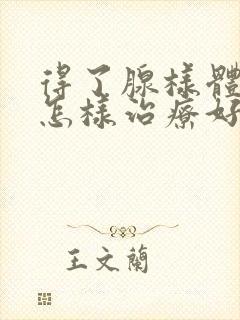 得了腺樣體
怎樣治療好
王文蘭